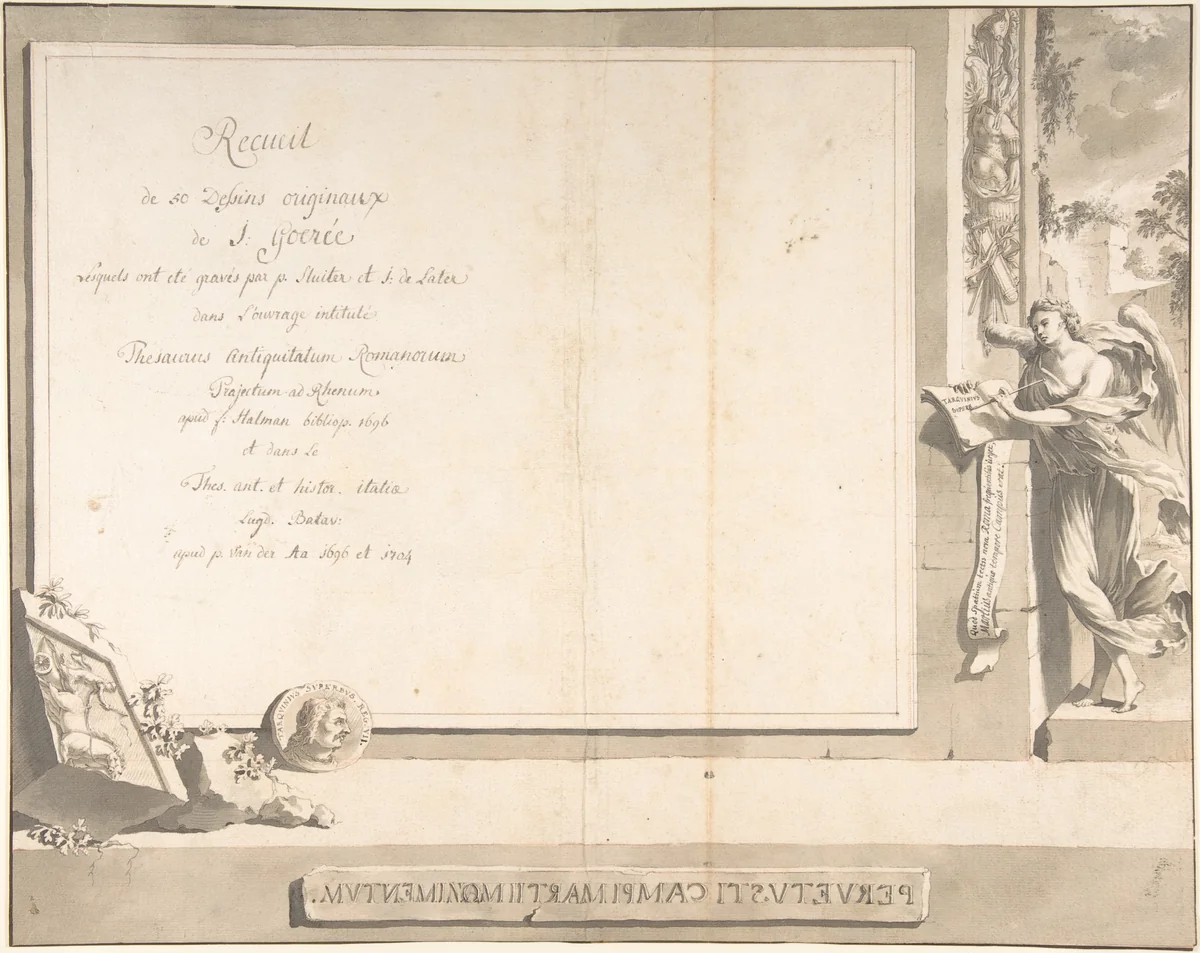 Recueil
de 50 Dessins originaux
de J: Goerée
Lesquels ont eté gravés par p. Sluiter et J: de Later
dans L'ouvrage intitulé
Thesaurus Antiquitatum Romanorum
Trajectum ad Rhenum
apud f: Halman bibliop. 1696
et dans Le
Thes. ant. et histor. italiæ
Lugd. Batav:
apud p. Van der Aa 1696 et 1704
TARQUINIUS
SUPERB
Quod Spatium tectis nova Roma frequentibus urget
Martius antiquo tempore Campus erat:
TARQVINIVS SVPERBVS. REG. VII.
PERVETVSTI CAMPI MARTII MONIMENTVM.